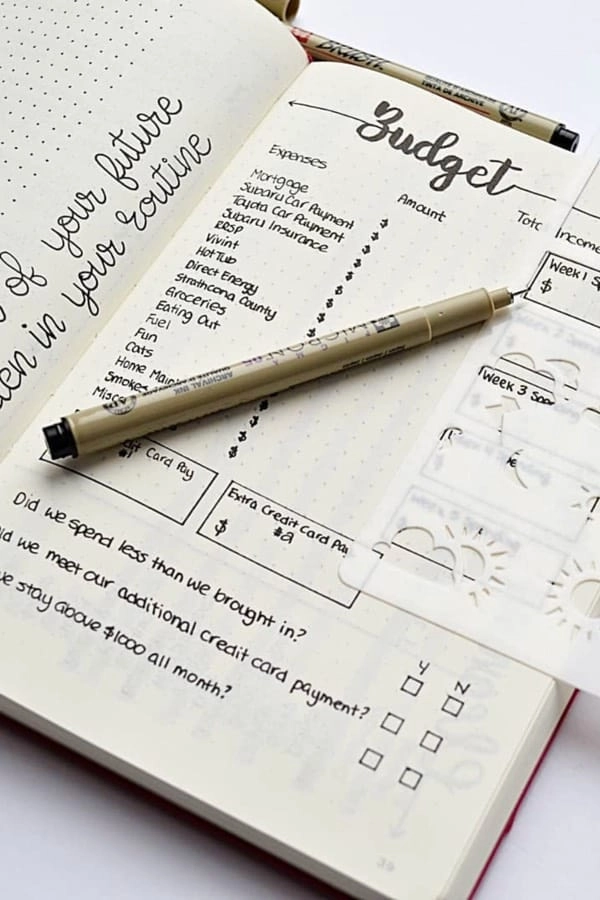 of your future
in your routine
BRUSH
TINTA DE ARCHIVE
Budget
Expenses
Amount
Income
Mortgage
Subaru Car Payment
Toyota Car Payment
Subaru Insurance
RRSP
Vivint
Hot Tub
Direct Energy
Strathcona County
Groceries
Eating Out
Fuel
Fun
Cats
Home
Smokes
$
$
$
$
$
$
$
$
$
$
$
$
Week 1
$
Week 3
MICRON 05
ARCHIVAL INK
Card Pay
#1
Extra Credit Card Pay
$ #2
Did we spend less than we brought in?
did we meet our additional credit card payment?
we stay above $1000 all month?
Y N
39